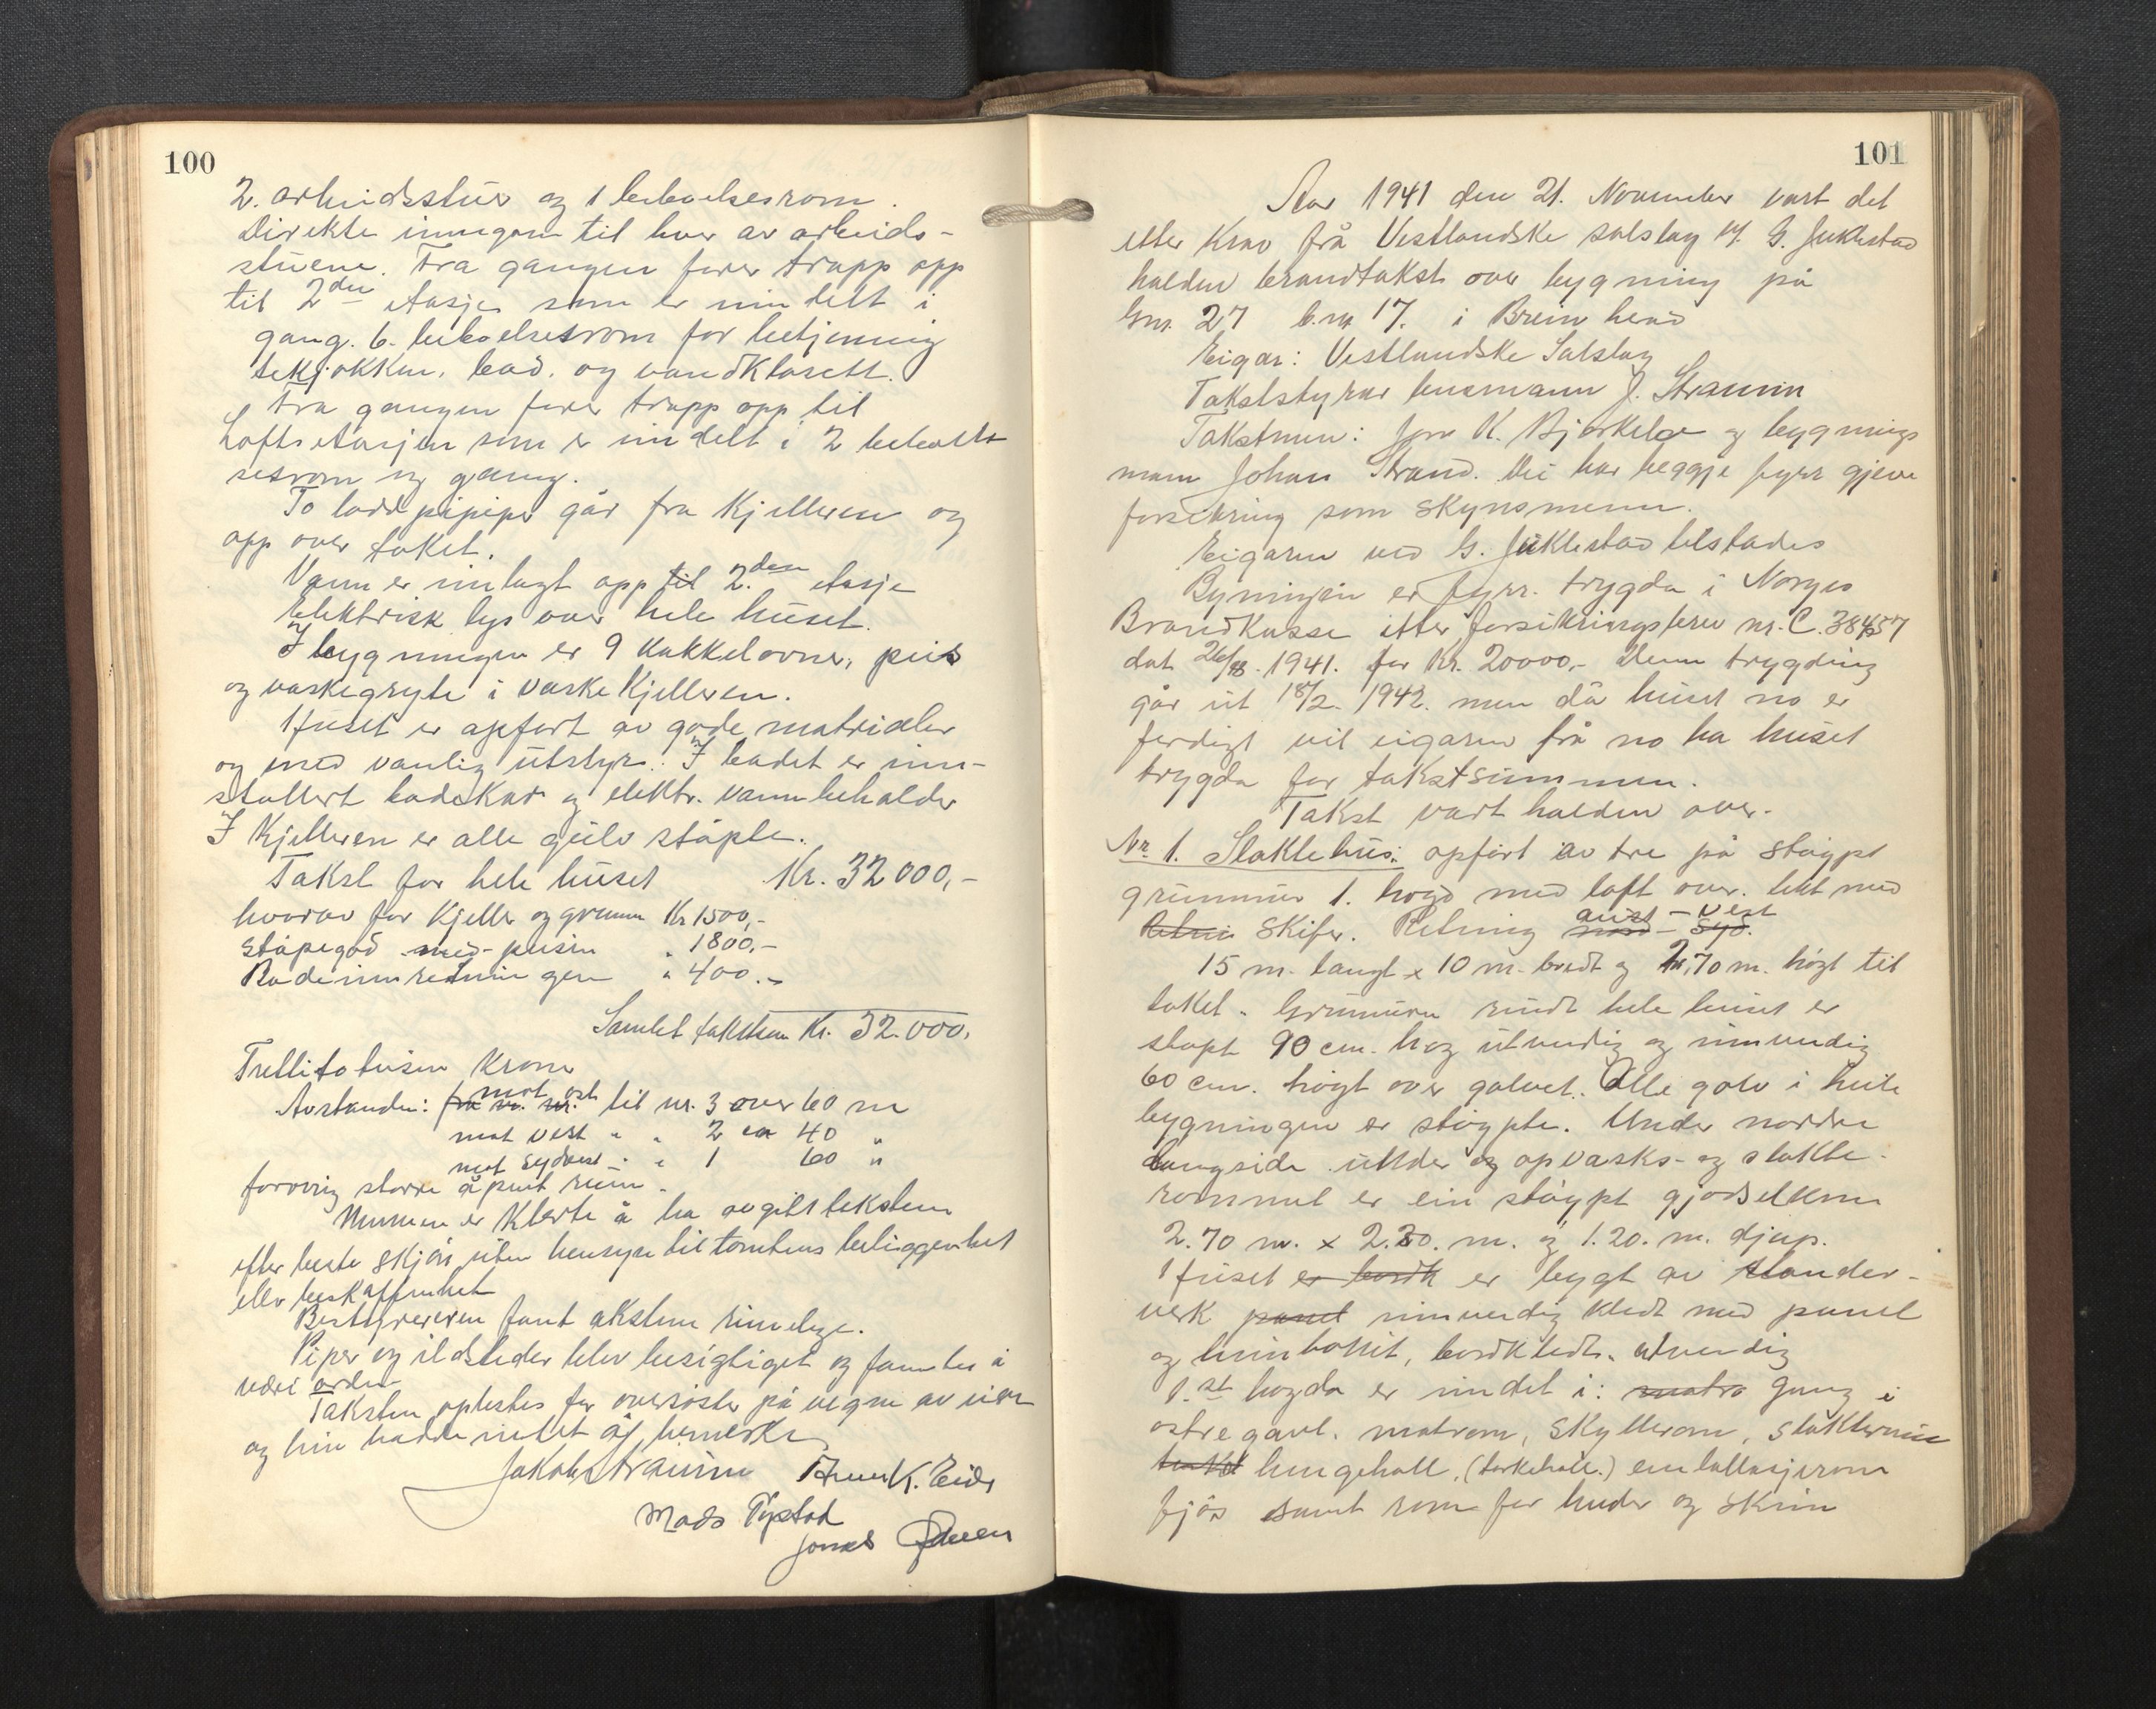 100
2. arbeidsstuer og 1 beboelsesrom.
Direkte inngom til hver av arbeids-
stuene. Fra gangen fører trapp opp
til 2den etasje som er inndelt i
gang. 6. beboelsesrom for betjening
tekjøkken, bad. og vandklosett.
Fra gangen fører trapp opp til
Loftsetasjen som er inndelt i 2 beboel
sesrom og gang.
To loddpipiper går fra Kjelleren og
opp over taket.
Vann er innlagt opp til 2.den etasje
Elektrisk lys over hele huset.
I bygningen er 9 kakkelovner, peis
og vaskegryte i vaskekjelleren.
Huset er opført av gode matrialer
og med vanlig utstyr. I badet er inn-
stallert badekar og elektr. vannbeholder
I Kjelleren er alle gulv støpte.
Takst for hele huset Kr. 32000,-
hvorav for Kjeller og grunn Kr 1500,-
støpegod med peisen " 1800,-
Badeinnretningen " 400.-
Samlet takstsum Kr. 32.000.
Trettitotusen Kroner
Avstanden: fra nr. nr. mot ost til nr. 3 over 60 m
mot vest " " 2 ca 40 "
mot sydvest " " 1 60 "
forøvrig større åpent rum.
Mennene erklærte å ha avgitt taksten
efter beste skjøn uten hensyn til tomtens beliggenhet
eller beskaffenhet
Bestyreren fant taksten rimelige.
Piper og ildsteder blev besigtiget og fantes i
være orden
Taksten oplestes for oversøster på vegne av eieren
og hun hadde intet å bemerke
Jakob Straume K. Eide
Mads Tystad
Jonas
101
Aar 1941 den 21. November vart det
etter krav frå Vestlandske salslag v/ G. Juklestad
halden brandtakst over bygning på
Gnr. 27 b.nr 17. i Breim herad
Eigar: Vestlandske Salslag
Takststyrar lensmann J. Straume
Takstmenn: Jon K. Bjørkelo og bygnings
mann Johan Strand. Dei har beggje fyrr gjeve
forsikring som skynsmenn.
Eigaren ved G. Juklestad tilstades
Bygningen er fyrr. trygda i Norges
Brandkasse etter forsikringsbrev nr. C. 38457
dat 26/8. 1941. for kr. 20000,- Denne trygding
går ut 18/2. 1942. men då huset no er
ferdigt vil eigaren frå no ha huset
trygda for takstsummen.
Takst vart halden over.
Nr 1. Slaktehus: opført av tre på støypt
grunnmur 1. høgd med loft over. tekt med
skifer. Retning nord - syd. aust - vest
15 m. langt x 10 m. bredt og 2,70 m. høgt til
taket. Grunnmuren rundt hele huset er
støpt 90 cm. høg utvendig og innvendig
60 cm. høgt over golvet. Alle golv i heile
bygningen er støypte. Under nordre
langside under og opvasks- og slakte-
rommet er ein støypt gjødselkum
2.70 m. x 2.20. m. og 1.20. m. djup.
Huset er bordk er bygt av stander-
verk panel innvendig kledt med panel
og hunbottit, bordkledt. utvendig
1.st høgda er inndelt i: matro Gang i
østre gavl. matrom, skyllerom, slakterum
hengehall, (tørkehall.) emballasjerom
fjøs samt rom for huder og skinn